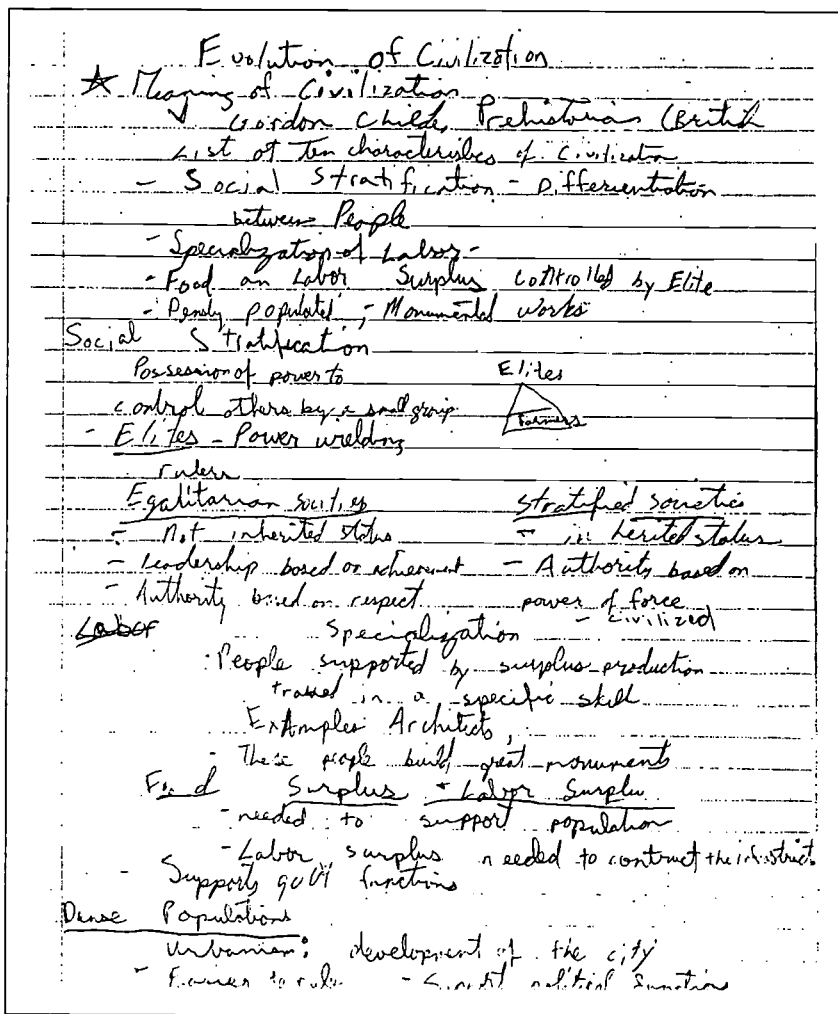 Evolution of Civilization
★ Meaning of Civilization
Gordon Childe, Prehistorian (British
List of Ten characteristics of Civilization
- Social Stratification - Differientiation
between People
- Specialization of Labor -
- Food an Labor Surplus controlled by Elite
- Densly populated, - Monumental works
Social Stratification
Possession of power to
control others by a small group
Elites
Farmers
- Elites - Power wielding
rulers
Egalitarian societies
- Not inherited status
- Leadership based on achievement
- Authority based on respect
Stratified Societies
- inherited status
- Authority based on
power of force
- civilized
Labor Specialization
People supported by surplus production
in a specific skill
Examples Architects,
- These people build great monuments
Food Surplus + Labor Surplu
- needed to support population
- Labor surplus needed to contruct the
- Supports gov't functions
Dense Populations
Urbanism: development of the city
- Easier to rule - political functions